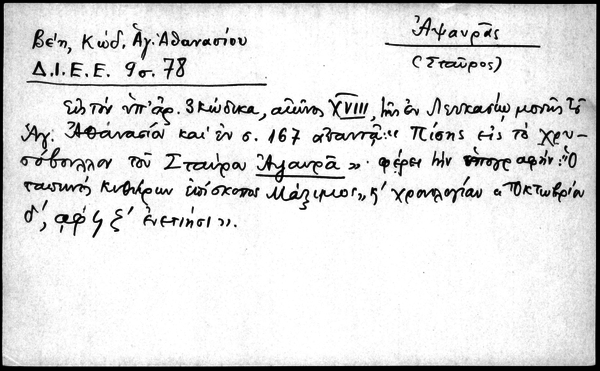 Βέη, Κώδ. Ἁγ. Ἀθανασίου
Δ.Ι.Ε.Ε. 9 σ. 78
Ἀψαυρᾶς
(Σταῦρος)
Εἰς τὸν ὑπ' ἀρ. 3 κώδικα, αἰῶνος XVIII, τῆς ἐν Λευκασίῳ μονῆς τοῦ
Ἁγ. Ἀθανασίου καὶ ἐν σ. 167 ἀπαντᾷ: " Πίσης εἰς τὸ χρυ-
σόβουλλον τοῦ Σταύρου Ἀψαυρᾶ ". φέρει τὴν ὑπογραφήν: "Ὁ
ταπεινὸς Κυθήρων ἐπίσκοπος Μάξιμος" κ' χρονολογίαν "Ὀκτωβρίου
δ', ἐνετίησι".